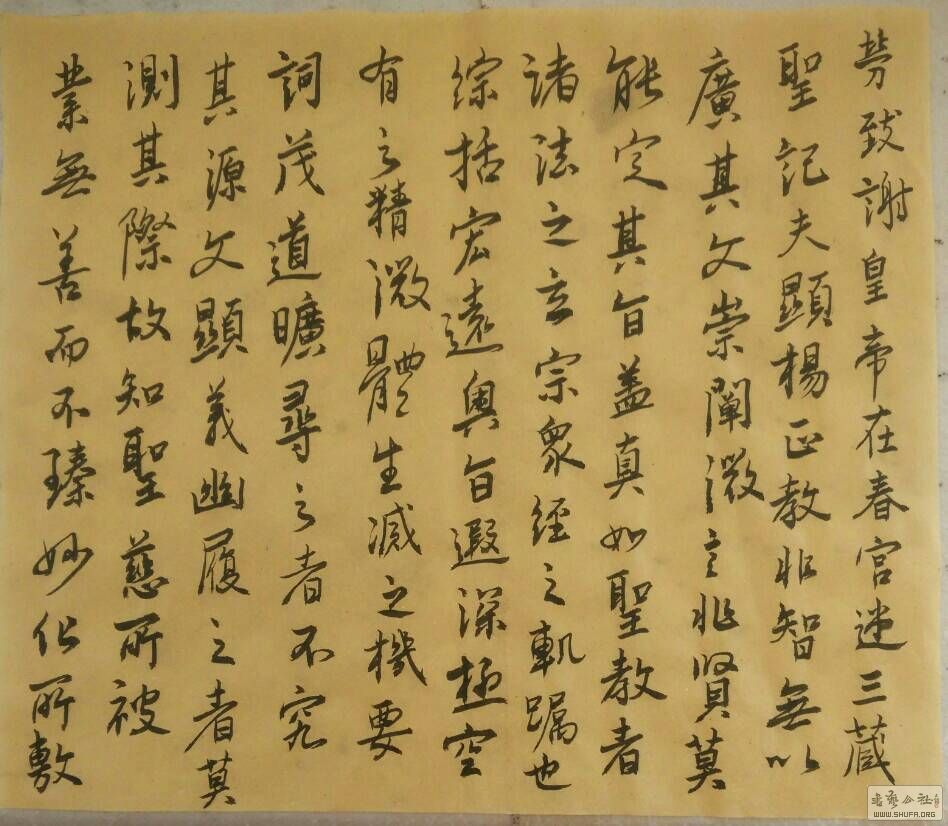 劳致謝皇帝在春宫述三藏
聖記夫顯楊正教非智無以
廣其文崇闡微言非賢莫
能定其旨盖真如聖教者
諸法之玄宗衆經之軌躅也
综括宏遠奥旨遐深極空
有之精微體生滅之機要
詞茂道曠尋之者不究
其源文顯義幽履之者莫
測其際故知聖慈所被
業無善而不臻妙化所敷
書藝公社
WWW.SHUFA.ORG